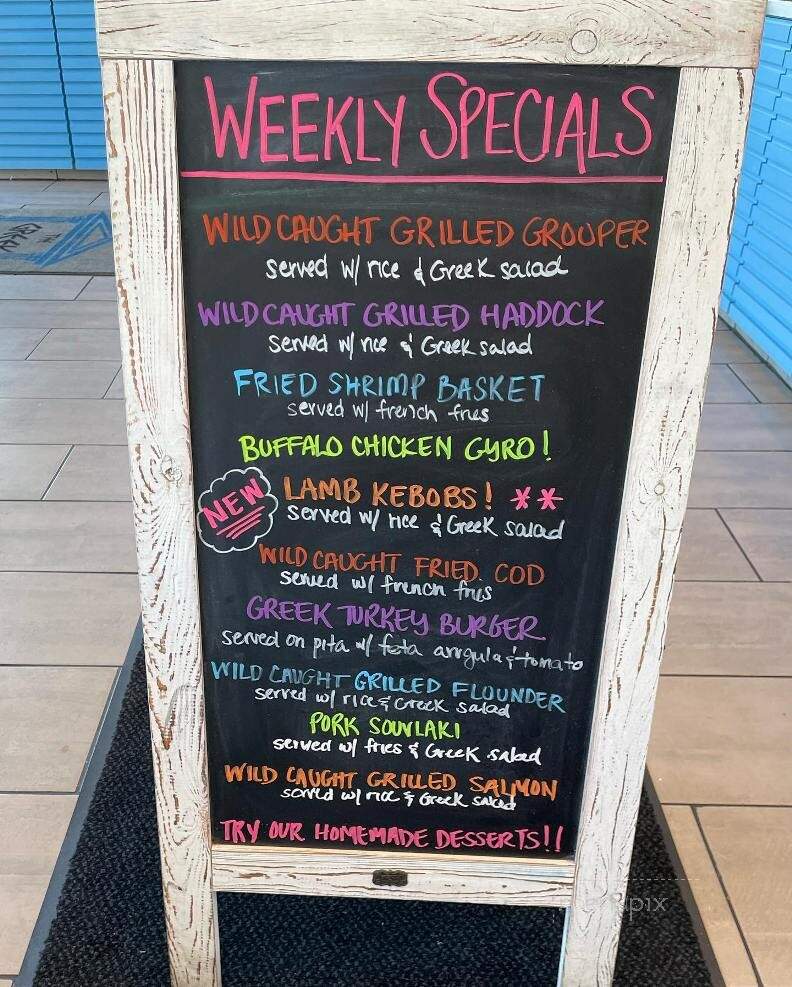 WEEKLY SPECIALS
WILD CAUGHT GRILLED GROUPER
served w/ rice & Greek salad
WILD CAUGHT GRILLED HADDOCK
served w/ rice & Greek salad
FRIED SHRIMP BASKET
served w/ french fries
BUFFALO CHICKEN GYRO!
NEW
LAMB KEBOBS! **
served w/ rice & Greek salad
WILD CAUGHT FRIED COD
served w/ french fries
GREEK TURKEY BURGER
served on pita w/ feta arugula & tomato
WILD CAUGHT GRILLED FLOUNDER
served w/ rice & Greek salad
PORK SOUVLAKI
served w/ fries & Greek salad
WILD CAUGHT GRILLED SALMON
served w/ rice & Greek salad
TRY OUR HOMEMADE DESSERTS!!